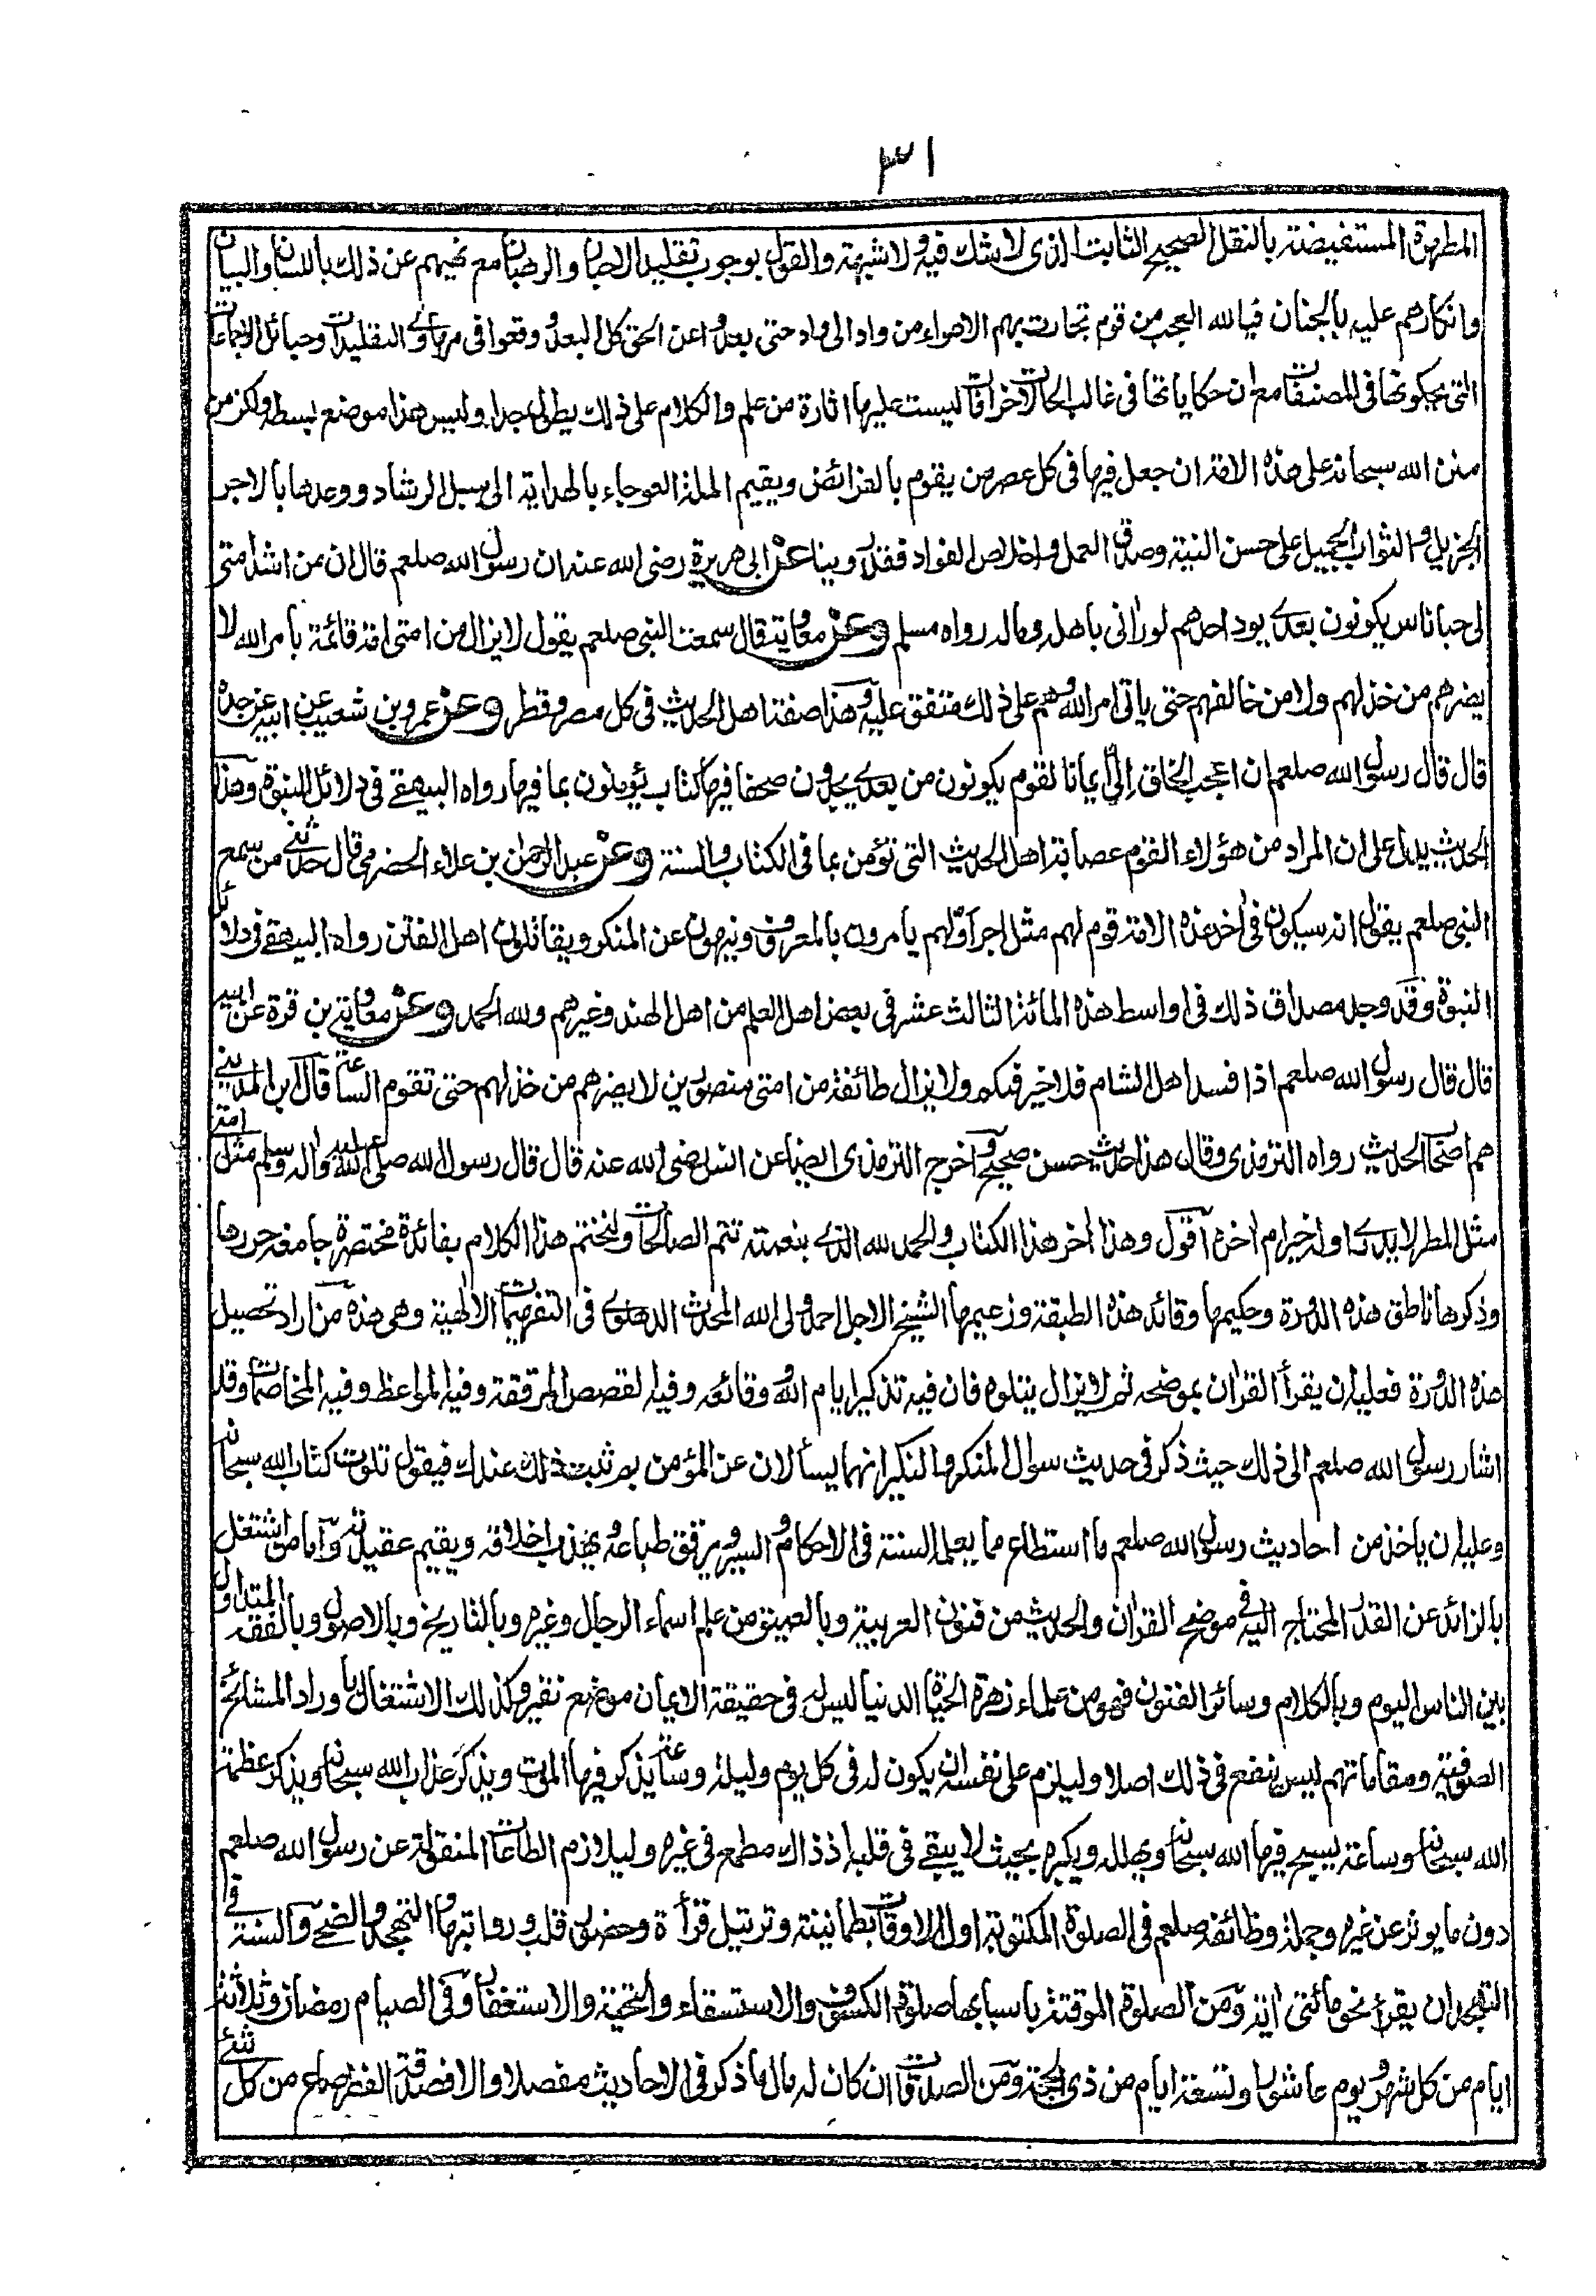 ٣١
المطهرة المستفيضة بالنقل الصحيح الثابت الذى لا شك فيه ولا شبهة والقول بوجوب تقليد الاحبار والرهبان مع نهيهم عن ذلك باللسان والبيان
وانكارهم عليه بالجنان فيا لله العجب من قوم تجارت بهم الاهواء من واد الى واد حتى بعدوا عن الحق كل البعد ووقعوا فى التقليدات وحبائل الاجماعات
التى يحكونها فى المصنفات مع ان حكاياتها فى غالب الحالات خرافات ليست عليها اثارة من علم والكلام على ذلك يطول جدا وليس هذا موضع بسطه ولكن من
منن الله سبحانه على هذه الامة ان جعل فيها فى كل عصر من يقوم بالفرائض ويقيم الملة العوجاء بالهداية الى سبيل الرشاد ووعدها بالاجر
الجزيل والثواب الجميل على حسن النية وصدق العمل واخلاص الفواد فقد روينا عن ابى هريرة رضى الله عنه ان رسول الله صلعم قال ان من اشد امتى
لى حبا ناس يكونون بعدى يود احدهم لو رانى باهله وماله رواه مسلم وعن معاوية قال سمعت النبى صلعم يقول لا يزال من امتى امة قائمة بامر الله لا
يضرهم من خذلهم ولا من خالفهم حتى ياتى امر الله وهم على ذلك متفق عليه وهذا صفة اهل الحديث فى كل مصر وقطر وعن عمرو بن شعيب عن ابيه عن جده
قال قال رسول الله صلعم ان اعجب الخلق الىّ ايمانا لقوم يكونون من بعدى يجدون صحفا فيها كتاب يؤمنون بما فيها رواه البيهقى فى دلائل النبوة وهذا
الحديث يدل على ان المراد من هؤلاء القوم عصابة اهل الحديث التى تؤمن بما فى الكتاب والسنة وعن عبد الرحمان بن علاء الحضرمى قال حدثنى من سمع
النبى صلعم يقول انه سيكون فى اخر هذه الامة قوم لهم مثل اجر اولهم يامرون بالمعروف وينهون عن المنكر ويقاتلون اهل الفتن رواه البيهقى فى دلائل
النبوة وقد وجد مصداق ذلك فى اواسط هذه المائة الثالث عشر فى بعض اهل العلم من اهل الهند وغيرهم ولله الحمد وعن معاوية بن قرة عن ابيه
قال قال رسول الله صلعم اذا فسد اهل الشام فلا خير فيكم ولا يزال طائفة من امتى منصورين لا يضرهم من خذلهم حتى تقوم الساعة قال ابن المدينى
هم اصحاب الحديث رواه الترمذى وقال هذا حديث حسن صحيح واخرج الترمذى ايضا عن انس رضى الله عنه قال قال رسول الله صلى الله عليه واله وسلم مثل امتى
مثل المطر لا يدرى اوله خير ام اخره اقول وهذا اخر هذا الكتاب والحمد لله الذى بنعمته تتم الصالحات ولنختم هذا الكلام بفائدة مختصرة جامعة حررها
وذكرها ناطق هذه الدورة وحكيمها وقائد هذه الطبقة وزعيمها الشيخ الاجل احمد ولى الله المحدث الدهلوى فى التفهيمات الالهية وهى هذه من اراد تحصيل
هذه الدورة فعليه ان يقرأ القران بموضحه ثم لا يزال يتلوه فان فيه تذكير ايام الله ووقائعه وفيه القصص المرققة وفيه المواعظ وفيه المخاصمات وقد
اشار رسول الله صلعم الى ذلك حيث ذكر فى حديث سوال المنكر والنكير انهما يسألان عن المؤمن بم ثبت ذلك عندك فيقول تلوت كتاب الله سبحانه
وعليه ان ياخذ من احاديث رسول الله صلعم ما استطاع مما يعلم السنة فى الاحكام والسير ويرقق طباعه ويهذب اخلاقه ويقيم عقيدته واما من اشتغل
بالزائد عن القدر المحتاج اليه فى موضح القران والحديث من فنون العربية وبالعميق من علم اسماء الرجال وغيره وبالتاريخ وبالاصول وبالفقه المتداول
بين الناس اليوم وبالكلام وسائر الفنون فهو من علماء زهرة الحياة الدنيا ليس له فى حقيقة الايمان نقير وكذلك الاشتغال باوراد المشائخ
الصوفية ومقاماتهم ليس ينفع فى ذلك اصلا وليلزم على نفسه ان يكون له فى كل يوم وليلة وساعة يذكر فيها الموت ويذكر عذاب الله سبحانه ويذكر عظمة
الله سبحانه وساعة يسبح فيها الله سبحانه ويهلله ويكبره بحيث لا يبقى فى قلبه اذ ذاك مطمع فى غيره وليلازم الطاعات المنقولة عن رسول الله صلعم
دون ما يوثر عن غيره وجملة وظائفه صلعم فى الصلوة المكتوبة اول الاوقات بطمانينة وترتيل قرأة وحضور قلب ورواتبها والتهجد والضحى والسنة فى
التهجد ان يقرأ نحو مائتى اية ومن الصلوة الموقتة باسبابها صلوة الكسوف والاستسقاء والتحية والاستغفار وفى الصيام رمضان وثلاثة
ايام من كل شهر ويوم عاشورا وتسعة ايام من ذى الحجة ومن الصدقات ان كان له مال ما ذكر فى الاحاديث مفصلا والا فصدقة الفطر صاع من كل شئ